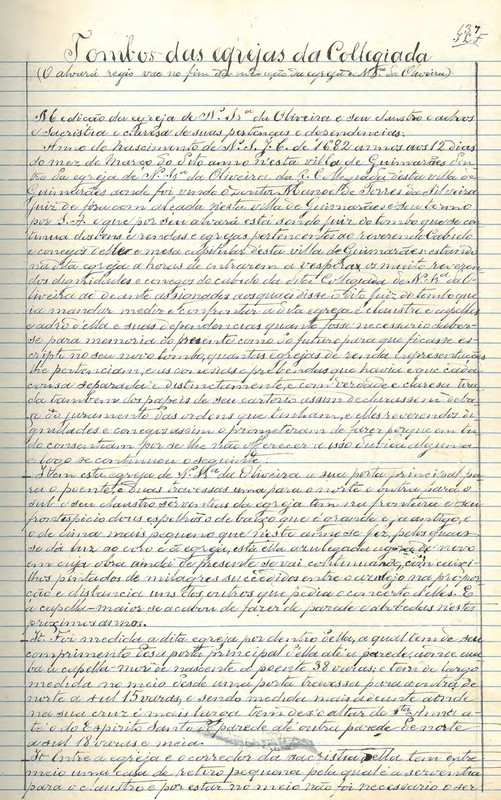 137
Tombos das egrejas da Collegiada
(O alvará regio vae no fim da medição da egreja de N. Sra. da Oliveira)
Medição da egreja de N.ª Sr.ª da Oliveira e seu claustro e adros
e sacristia e de suas pertenças e dependencias.
Anno do Nascimento de N. S. J. C. de 1682 annos aos 12 dias
do mez de Março do dito anno n'esta villa de Guimarães den-
tro da egreja de N.ª Sr.ª da Oliveira da Collegiada desta villa de
Guimarães donde foi vindo o Doutor Manoel de Torres da Silveira
juiz de fóra com alçada nesta villa de Guimarães e seu termo
por S. A. e que por seu alvará está sendo juiz do tombo que se con-
tinua dos bens e rendas e egrejas pertencentes ao reverendo Cabido
e conegos della e mesa capitular desta villa de Guimarães estando
na dita egreja a horas de entrarem a vesperas os muito reveren-
dos dignidades e conegos do cabido da dita Collegiada de N.ª Sr.ª da O-
liveira ao deante assignados aos quaes disse o dito juiz do tombo que
ia mandar medir e confrontar a dita egreja e claustro e capellas
e adro d'ella e suas dependencias quanto fosse necessario haver-
se para memoria do presente como do futuro para que ficasse es-
cripto no seu novo tombo, quantas egrejas de renda e apresentação
lhe pertenciam, e as conesias e prebendas que havia e que cada
cousa separada e distinctamente, e com verdade e clareza tira-
da tambem dos papeis do seu cartorio assim declarassem debai-
xo do juramento das ordens que tinham, e elles reverendos di-
gnidades e conegos assim o prometeram de fazer porque em tu-
do consentiam por se lhe não offerecer a isso duvida alguma
e logo se continuou o seguinte.
Item esta egreja de N.ª Sr.ª da Oliveira a sua porta principal pa-
ra o poente, e duas travessas uma para o norte e outra para o
sul e seu claustro serventias da egreja tem na fronteira e seu
frontespicio dous espelhos o de baixo que é grande e já antigo, e
o de cima mais pequeno que neste anno se fez, pelos quaes
se dá luz ao coro e á egreja, está ella azulejada agora de novo
em cuja obra ainda de presente se vai continuando, com caixi-
lhos pintados de milagres succedidos entre o azulejo na propor-
ção e distancia uns dos outros que pedia o concerto d'elles. E
a capella-maior se acabou de fazer de parede e abobadas nestes
proximos annos.
It. Foi medida a dita egreja por dentro della, a qual tem de seu
comprimento desde a porta principal della até á parede, aonde aca-
ba a capella-mor de nascente a poente 38 varas; e tem de largo
medida no meio desde uma porta travessa para a outra de
norte a sul 15 varas, e sendo medida mais adeante aonde
na sua cruz é mais larga tem desde o altar de a-
té o do Espirito Santo de parede até outra parede de norte
a sul 18 varas e meia.
It. Entre a egreja e o corredor da sacristia della tem entre
meio uma casa de retiro pequena pela qual é a serventia
para o claustro e por estar no meio não foi necessario o ser